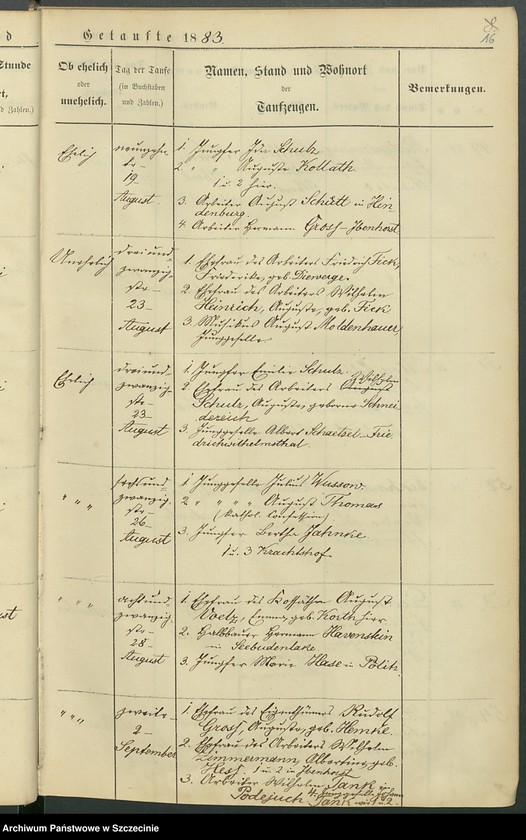 d
Stunde
rt,
d Zahlen.)
Getaufte 1883.
8
16
Ob ehelich
oder
unehelich.
Tag der Taufe
(in Buchstaben
und Zahlen.)
Namen, Stand und Wohnort
der
Taufzeugen.
Bemerkungen.
Ehelich
neunzehn
te
19
August
1. Jungfer Ida Schulz
2. " " Auguste Kollath
1 u. 2 hier.
3. Arbeiter August Schütt in Hin
denburg.
4. Arbeiter Hermann Gross - Ibenhorst
Unehelich
dreiund
zwanzig-
ste
23
August
1. Ehefrau des Arbeiters Friedrich Fick,
Friederike, geb. Dierwerge.
2. Ehefrau des Arbeiters Wilhelm
Heinrich, Auguste, geb. Fick
3. Musikus August Moldenhauer,
Junggeselle.
Ehelich
dreiund
zwanzig-
ste
23
August
1. Jungfer Emilie Schulz.
2. Ehefrau des Arbeiters August Wilhelm
Schulz, Auguste, geborne Schnei
dereich
3. Junggeselle Albert Schaetzel - Frie
drichwilhelmsthal.
" " "
sechsund
zwanzig-
ste
26
August
1 Junggeselle Julius Wussow.
2 " " " August Thomas
(kathol. Confession)
3. Jungfer Bertha Jahnke.
1 u. 3 Krachtshof.
" " "
achtund
zwanzig-
ste
28
August
1. Ehefrau des Kossäthen August
Voelz, Emma, geb. Korth hier
2. Halbbauer Hermann Havenstein
in Seebudenlake.
3. Jungfer Marie Hase in Pölitz.
" " "
zweite
2
September
1 Ehefrau des Eigenthümers Rudolf
Gross, Auguste, geb. Hemke.
2. Ehefrau des Arbeiters Wilhelm
Zimmermann, Albertine, geb.
Hess. 1 u. 2 in Ibenhorst
3. Arbeiter Wilhelm Tank in
Podejuch
4. Junggeselle
Tank
Archiwum Państwowe w Szczecinie